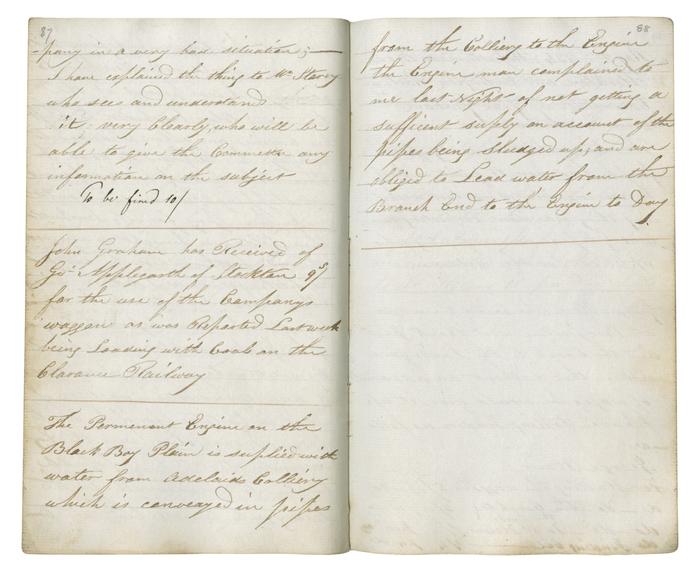 87
-pany in a very bad situation;—
I have explained the thing to Mr Storey
who sees and understand
it very Clearly, who will be
able to give the Committe any
information on the subject
To be fined 10/
John Graham has Received of
Geo: Applegarth of Stockton 9s/
for the use of the Companys
waggon as was Reported Last week
being Loading with Coals on the
Clarance Railway
The Permenant Engine on the
Black Boy Plain is suplied with
water from Adelaids Colliery
which is conveayed in pipes
88
from the Colliery to the Engine
the Engine man complained to
me last Night of not getting a
sufficent suply on account of the
pipes being sludged up; and are
obliged to Lead water from the
Branch End to the Engine to Day